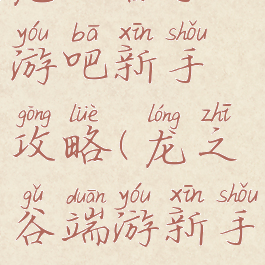 yóu bā xīn shǒu
游吧新手
gōng lüè lóng zhī
攻略(龙之
gǔ duān yóu xīn shǒu
谷端游新手